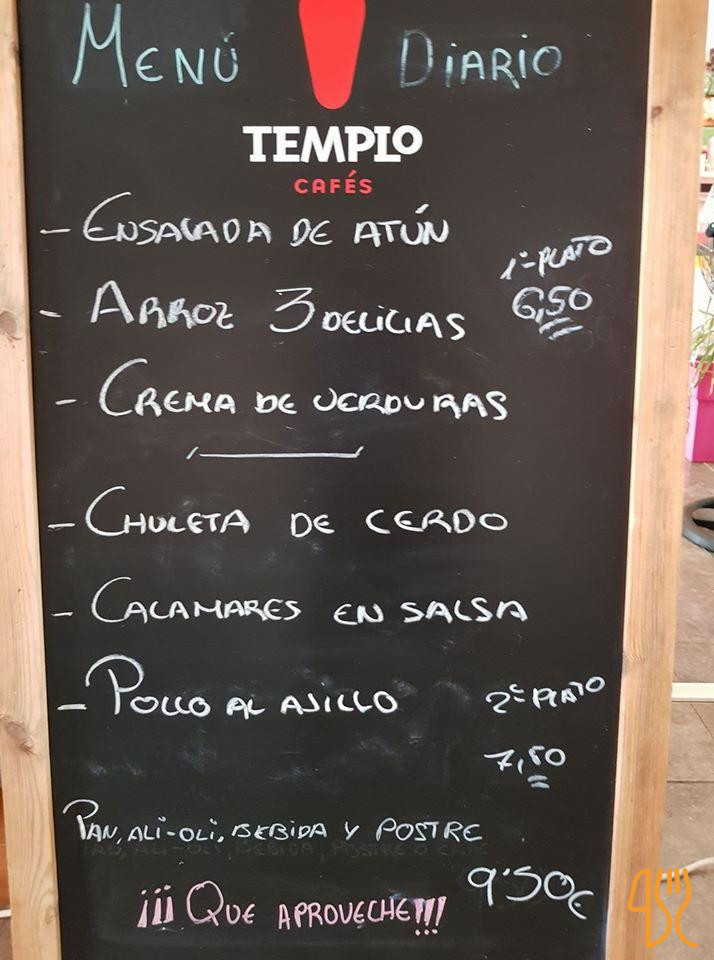 MENÚ DIARIO
TEMPLO
CAFÉS
- ENSALADA DE ATÚN
1º PLATO
6,50
- ARROZ 3 DELICIAS
- CREMA DE VERDURAS
- CHULETA DE CERDO
- CALAMARES EN SALSA
- POLLO AL AJILLO
2º PLATO
7,50
PAN, ALI-OLI, BEBIDA Y POSTRE
9'50€
¡¡¡ QUE APROVECHE!!!